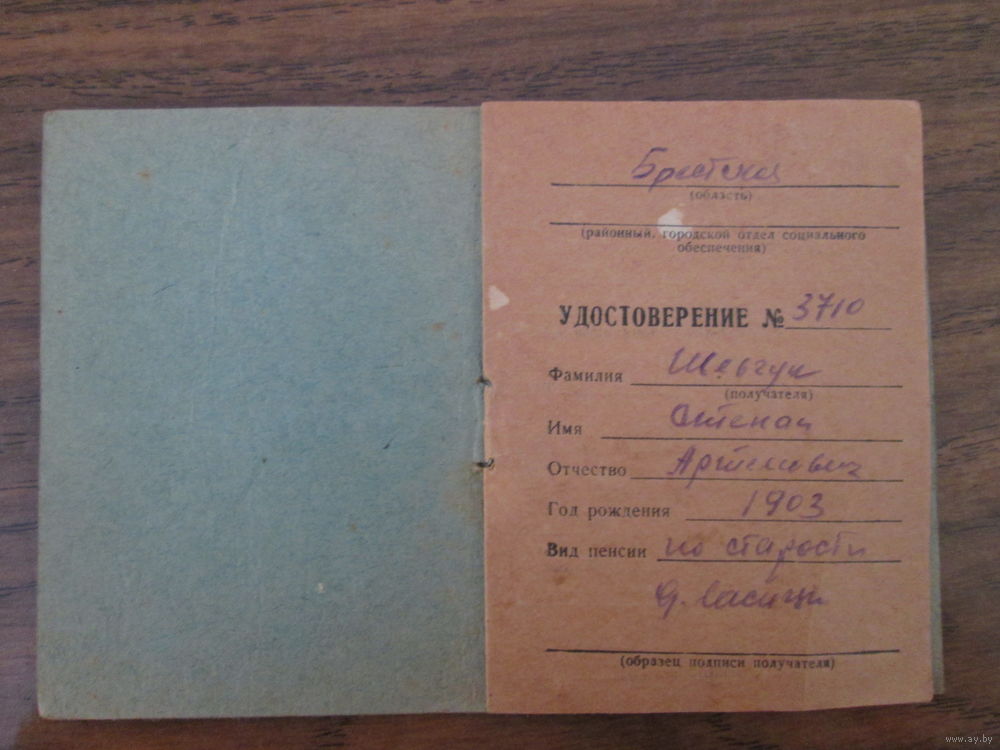 Брестская
(область)
(районный, городской отдел социального
обеспечения)
УДОСТОВЕРЕНИЕ № 3710
Фамилия Шевчук
(получателя)
Имя Степан
Отчество Артемович
Год рождения 1903
Вид пенсии по старости
д.
(образец подписи получателя)
www.ay.by